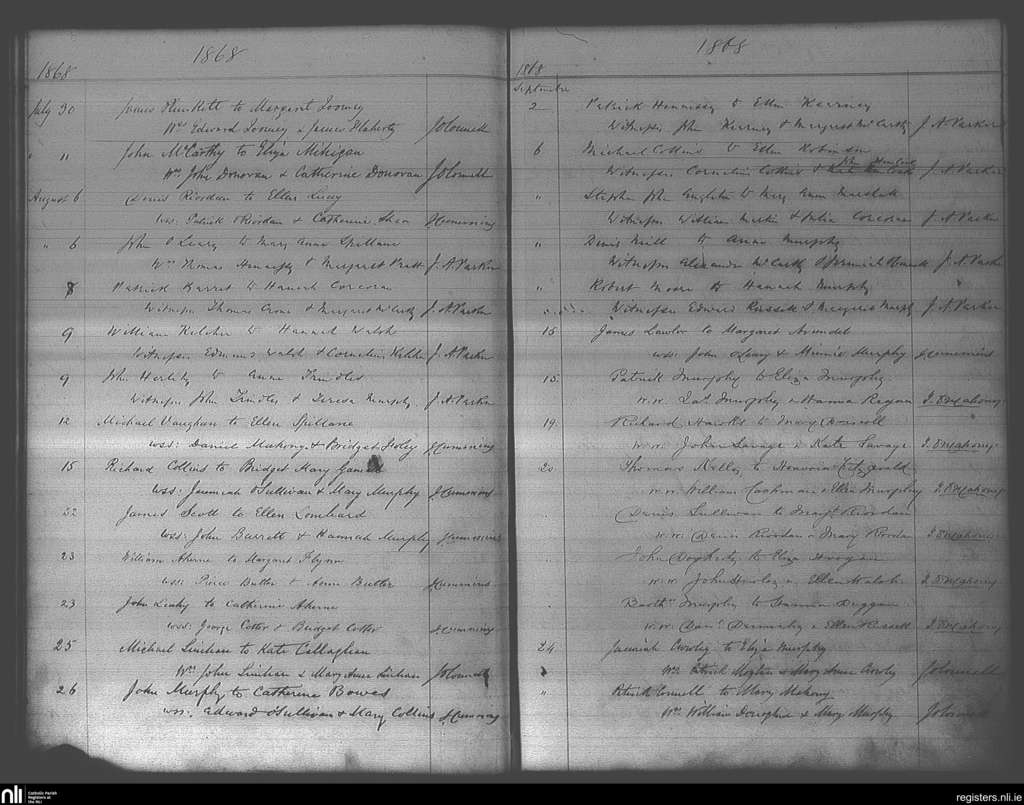 1868
1868
July 30 James Plunkett to Margaret Toomey
Wss Edward Toomey & James Flaherty
" " John McCarthy to Eliza Mihigan
Wss John Donovan & Catherine Donovan
August 6 Denis Riordan to Ellen Lucy
wss: Patrick O'Riordan & Catherine Shea J Cummins
" 6 John O'Leary to Mary Anne Spillane
Wss Thomas Hennessy & Margaret Pratt J. A. Parker
8 Patrick Barret to Hanah Corcoran
Witnesses Thomas Crone & Margaret McCarthy J. A. Parker
9 William Kelcher to Hannah Walsh
Witnesses Edmund Walsh & Cornelius J. A. Parker
9 John Herlihy to Anne Trindles
Witnesses John Trindles & Teresa Murphy J. A. Parker
12 Michael Vaughan to Ellen Spillane
wss: Daniel Mahony & Bridget Foley J Cummins
15 Richard Collins to Bridget Mary
wss: Jeremiah O'Sullivan & Mary Murphy J Cummins
22 James Scott to Ellen Lombard
wss: John Barrett & Hannah Murphy J Cummins
23 William Aherne to Margaret Flynn
wss: Pierce Butler & Anne Butler J Cummins
23 John Leahy to Catherine Aherne
wss: George Cotter & Bridget Cotter J Cummins
25 Michael Linihan to Kate Callaghan
Wss John Linihan & Mary Anne Linihan
26 John Murphy to Catherine Bowes
wss: Edward O'Sullivan & Mary Collins J Cummins
1868
1868
Septembre
2 Patrick Hennessy to Ellen Kearney
Witnesses John Kearney & Margaret McCarthy J. A. Parker
6 Michael Collins to Ellen Robinson
Witnesses Cornelius Collins & J. A. Parker
" Stephen John to Mary Ann Marshall
Witnesses William Martin & Julia Corcoran J. A. Parker
" Denis Neill to Anne Murphy
Witnesses Alexander McCarthy & Jeremiah J. A. Parker
" Robert Moore to Hannah Murphy
Witnesses Edward Russell & Margaret Murphy J. A. Parker
15 James Lawlor to Margaret Arundel
wss: John O'Leary & Minnie Murphy J Cummins
15 Patrick Murphy to Eliza Murphy
w.w. Pat. Murphy & Hanna Regan J. O'Mahony
19 Richard Hawks to Mary
w.w. John Savage & Kate Savage J. O'Mahony
20 Thomas Kelly to Honoria Fitzgerald
w.w. William Cashman & Ellen Murphy J. O'Mahony
Denis Sullivan to Margt Riordan
w.w. Denis Riordan & Mary Riordan J. O'Mahony
John Dogherty to Eliza
w.w. John Hawley & Ellen J. O'Mahony
Barth. Murphy to Hanna Duggan
w.w. Danl & Ellen Russell J. O'Mahony
24 Jeremiah Crowley to Eliza Murphy
Wss Patrick & Mary Anne Crowley
" Patrick Connell to Mary Mahony
Wss William Donoghue & Mary Murphy
nli
Catholic Parish
Registers at
the NLI
registers.nli.ie